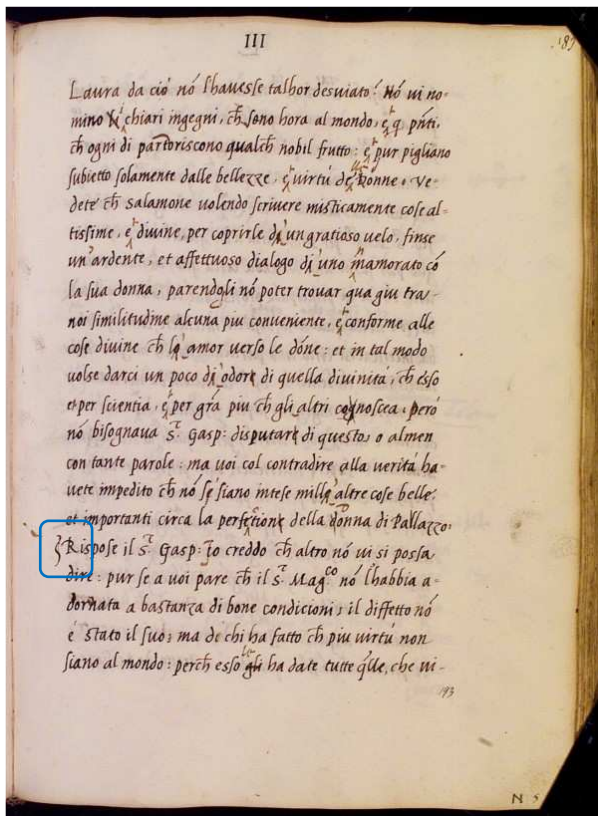 III
Laura da ciò nó l'havesse talhor desviato? Nó vi no-
mino i chiari ingegni, ch̄ sono hora al mondo, et q̄ pñti,
ch̄ ogni di partoriscono qualch̄ nobil frutto: et pur pigliano
subietto solamente dalle bellezze, et virtú de donne. Ve-
dete ch̄ Salamone volendo scrivere misticamente cose al-
tissime, et divine, per coprirle di un gratioso velo, finse
un' ardente, et affettuoso dialogo di uno innamorato có
la sua donna, parendogli nó poter trovar qua giu tra-
noi similitudine alcuna piu conveniente, et conforme alle
cose divine ch̄ lo amor verso le dóne: et in tal modo
volse darci un poco di odor di quella divinitá, ch̄ esso
et per scientia, et per gr̃a piu ch̄ gli altri cognoscea. però
nó bisognava S.r Gasp: disputar di questo, o almen
con tante parole: ma voi col contradire alla veritá ha-
vete impedito ch̄ nó se siano intese mille altre cose belle.
et importanti circa la perfetion della donna di Pallazzo:
Rispose il S.r Gasp: Io creddo ch̄ altro nó vi si possa
dire: pur se a voi pare ch̄ il S.r Mag.co nó l'habbia a-
dornata a bastanza di bone condicioni; il diffetto nó
é stato il suo; ma de chi ha fatto ch̄ piu virtú non
siano al mondo: perch̄ esso gli ha date tutte q̃lle, che vi-
193
N 5